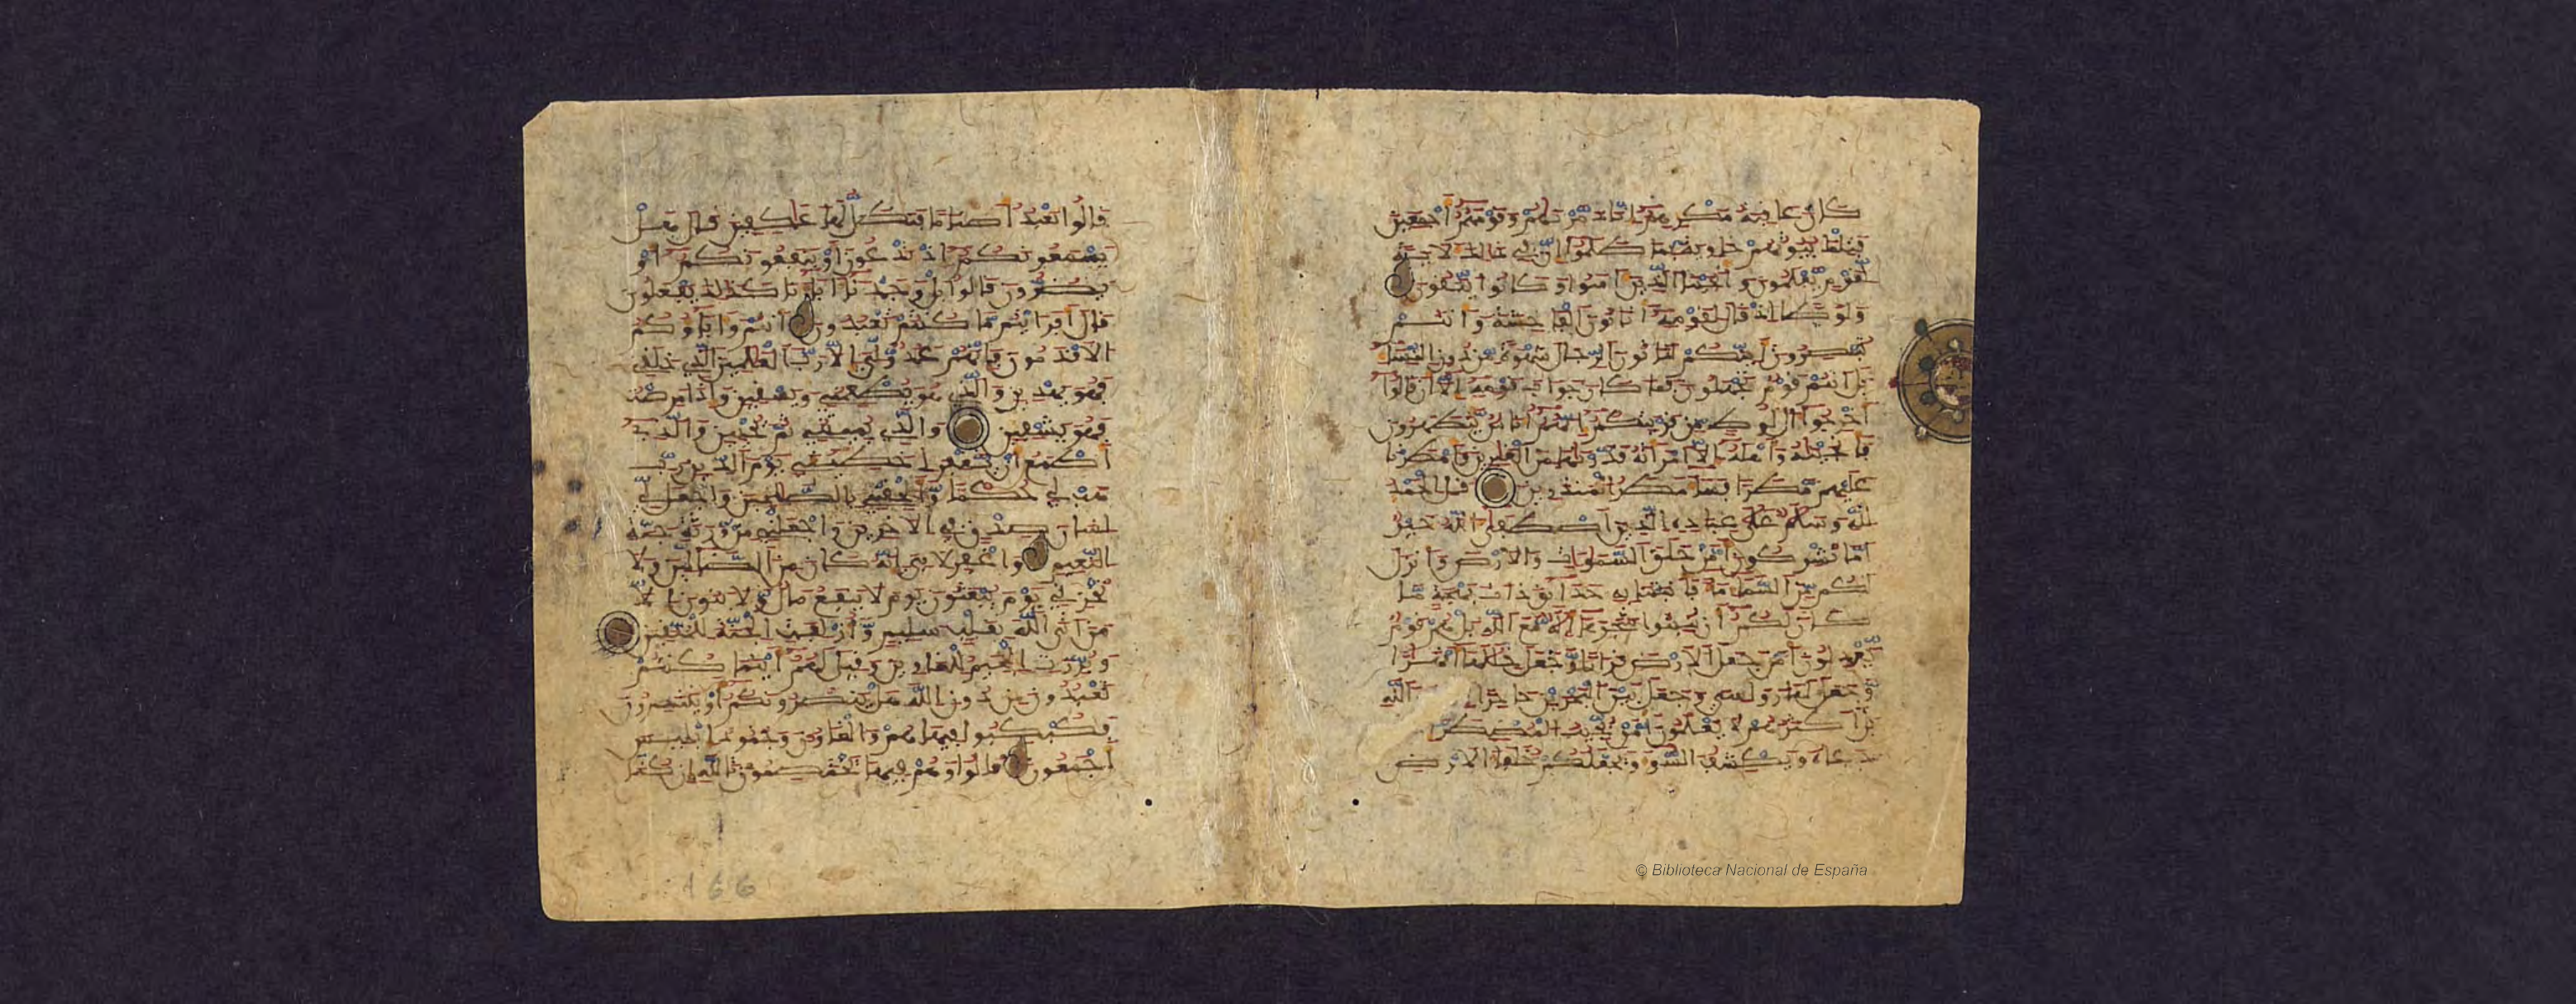 كان عاقبة مكرهم إنا دمرنهم وقومهم أجمعين
فتلك بيوتهم خاوية بما ظلموا إن في ذلك لآية
لقوم يعلمون وأنجينا الذين آمنوا وكانوا يتقون
ولوطا إذ قال لقومه أتاتون الفاحشة وأنتم
تبصرون أينكم لتاتون الرجال شهوة من دون النساء
بل أنتم قوم تجهلون فما كان جواب قومه إلا أن قالوا
أخرجوا آل لوط من قريتكم إنهم أناس يتطهرون
فأنجينه وأهله إلا امرأته قدرنها من الغبرين وأمطرنا
عليهم مطرا فساء مطر المنذرين قل الحمد
لله وسلم على عباده الذين اصطفى آلله خير
أما تشركون أمن خلق السموات والأرض وأنزل
لكم من السماء ماء فأنبتنا به حدائق ذات بهجة ما
كان لكم أن تنبتوا شجرها أإله مع الله بل هم قوم
يعدلون أمن جعل الأرض قرارا وجعل خللها أنهرا
وجعل لها روسي وجعل بين البحرين حاجزا الله
بل أكثرهم لا يعلمون أمن يجيب المضطر
دعاه ويكشف السوء ويجعلكم خلفاء الأرض
قالوا نعبد أصناما فنظل لها عكفين قال هل
يسمعونكم إذ تدعون أو ينفعونكم أو
يضرون قالوا بل وجدنا آباءنا كذلك يفعلون
قال أفرايتم ما كنتم تعبدون أنتم وآباؤكم
الأقدمون فإنهم عدو لي إلا رب العلمين الذي خلقني
فهو يهدين والذي هو يطعمني ويسقين وإذا مرضت
فهو يشفين والذي يميتني ثم يحيين والذي
أطمع أن يغفر لي خطيئتي يوم الدين رب
هب لي حكما وألحقني بالصلحين واجعل لي
لسان صدق في الآخرين واجعلني من ورثة جنة
النعيم واغفر لأبي إنه كان من الضالين ولا
تخزني يوم يبعثون يوم لا ينفع مال ولا بنون إلا
من أتى الله بقلب سليم وأزلفت الجنة للمتقين
وبرزت الجحيم للغاوين وقيل لهم أينما كنتم
تعبدون من دون الله هل ينصرونكم أو ينتصرون
فكبكبوا فيها هم والغاون وجنود إبليس
أجمعون قالوا وهم فيها يختصمون تالله إن كنا
166
© Biblioteca Nacional de España